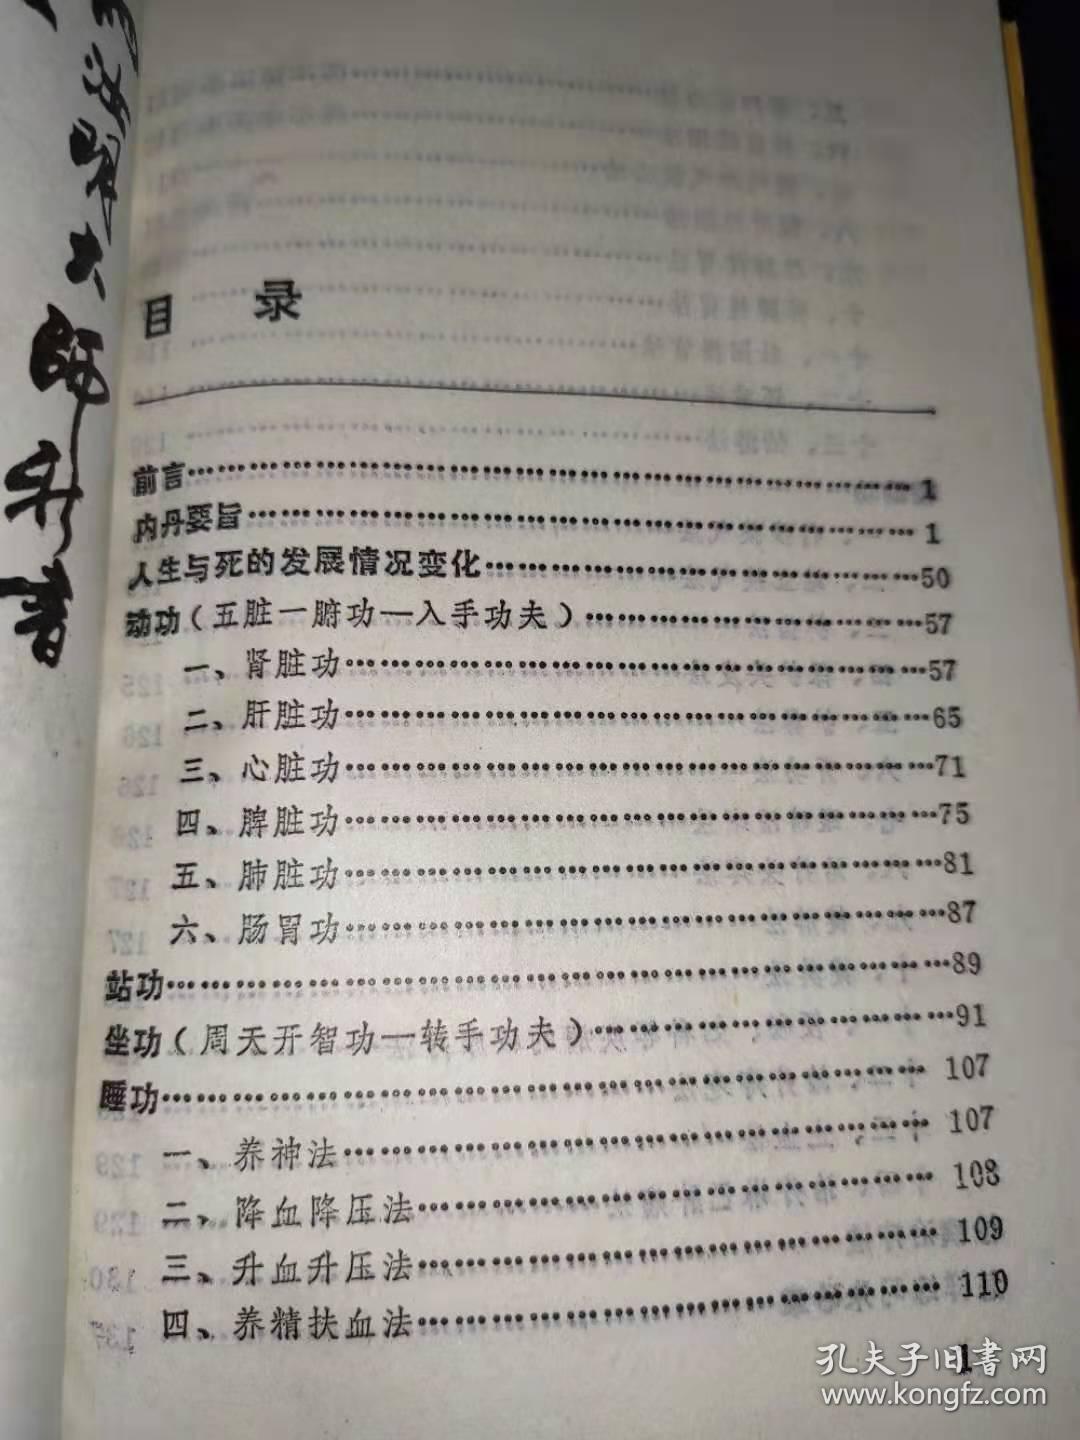 大师升书
目 录
前言……1
内丹要旨……1
人生与死的发展情况变化……50
动功(五脏一腑功—入手功夫)……57
一、肾脏功……57
二、肝脏功……65
三、心脏功……71
四、脾脏功……75
五、肺脏功……81
六、肠胃功……87
站功……89
坐功(周天开智功—转手功夫)……91
睡功……107
一、养神法……107
二、降血降压法……108
三、升血升压法……109
四、养精扶血法……110
1
孔夫子旧书网
www.kongfz.com